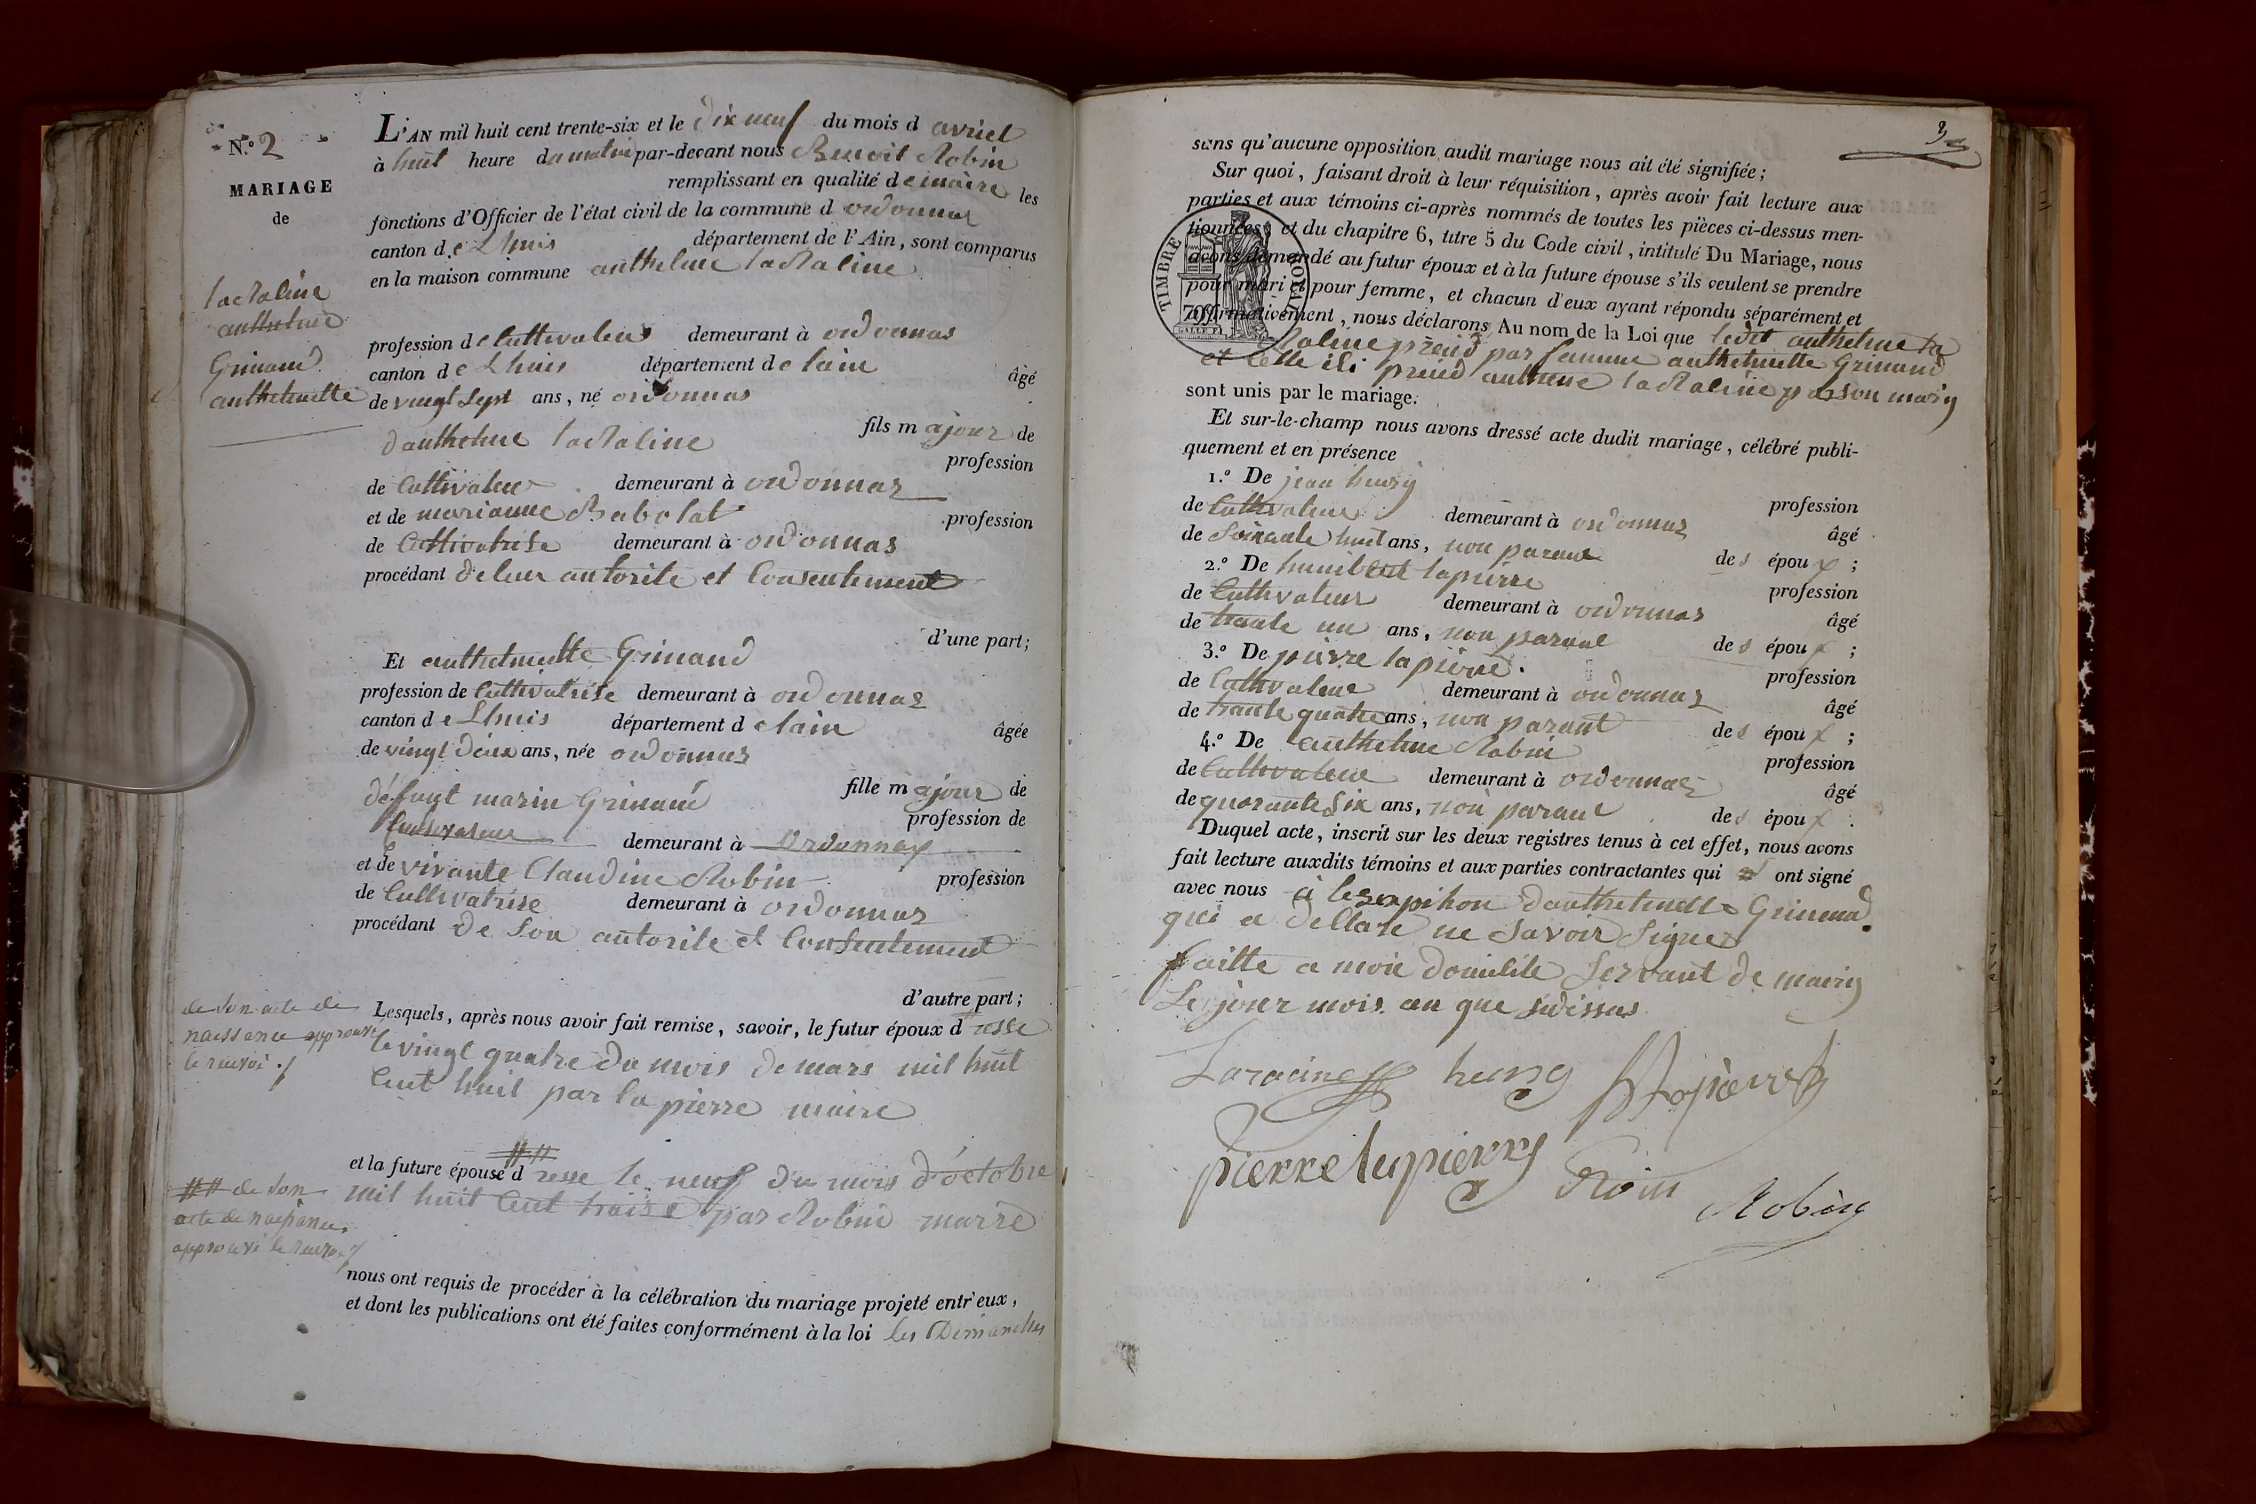 N.º 2
MARIAGE
de
Larraline
anthelme
Grinand
anthelmette
L'AN mil huit cent trente-six et le dix neuf du mois d avriel
à huit heure du matin par-devant nous Benoit Robin
remplissant en qualité de maire les
fonctions d'Officier de l'état civil de la commune d ordonnaz
canton de Lhuis département de l'Ain, sont comparus
en la maison commune anthelme laRaline
profession de Cultivateur demeurant à ordonnas
canton de Lhuis département de lain âgé
de vingt Sept ans, né ordonnas
fils majour de
danthelme laRaline profession
de Cultivateur demeurant à ordonnaz
et de marianne Rabolat profession
de Cultivatrise demeurant à ordonnas
procédant de leur autorite et Consentement
d'une part;
Et anthelmette Grinand
profession de Cultivatrise demeurant à ordonnaz
canton de Lhuis département de lain âgée
de vingt deux ans, née ordonnas
fille majour de
défunt marin Grinand profession de
Cultivateur demeurant à Ordonnaz
et de vivante Claudine Robin profession
de Cultivatrise demeurant à ordonnas
procédant de Son autorite et Consentement
d'autre part;
de Son acte de
naissance approuvé
le renvoi
Lesquels, après nous avoir fait remise, savoir, le futur époux d resse
le vingt quatre du mois de mars mil huit
Cent huit par la pierre maire
et la future épouse d resse le neuf du mois d'octobre
## de Son
acte de naissance
approuvé le renvoi
mil huit Cent traise par Robin marre
nous ont requis de procéder à la célébration du mariage projeté entr'eux,
et dont les publications ont été faites conformément à la loi les Dimanches
sans qu'aucune opposition audit mariage nous ait été signifiée;
Sur quoi, faisant droit à leur réquisition, après avoir fait lecture aux
parties et aux témoins ci-après nommés de toutes les pièces ci-dessus men-
tionnées, et du chapitre 6, titre 5 du Code civil, intitulé Du Mariage, nous
avons demandé au futur époux et à la future épouse s'ils veulent se prendre
pour mari et pour femme, et chacun d'eux ayant répondu séparément et
affirmativement, nous déclarons Au nom de la Loi que ledit anthelme la
TIMBRE ROYAL
Raline prend par femme anthelmette Grinand
et Celle ili prend anthelme laRaline par son mariy
sont unis par le mariage.
Et sur-le-champ nous avons dressé acte dudit mariage, célébré publi-
quement et en présence
1.º De jean hugy profession
de Cultivateur demeurant à ordonnaz âgé
de Soixante huit ans, non parant des époux;
2.º De humbert lapierre profession
de Cultivateur demeurant à ordonnas âgé
de trante un ans, non parant des époux;
3.º De pierre lapierre profession
de Cultivateur demeurant à ordonnaz âgé
de trante quatre ans, non parant des époux;
4.º De anthelme Robin profession
de Cultivateur demeurant à ordonnaz âgé
de quarante Six ans, non parant des époux.
Duquel acte, inscrit sur les deux registres tenus à cet effet, nous avons
fait lecture auxdits témoins et aux parties contractantes qui ont signé
avec nous à lesexpition danthelmette Grinand
qui a dellare ne Savoir Signer
faitte a moie domilile Servant de mairiy
Le jour mois an que sudissus
Laracine hugy Lapierre
pierre lapierre Robin Robin